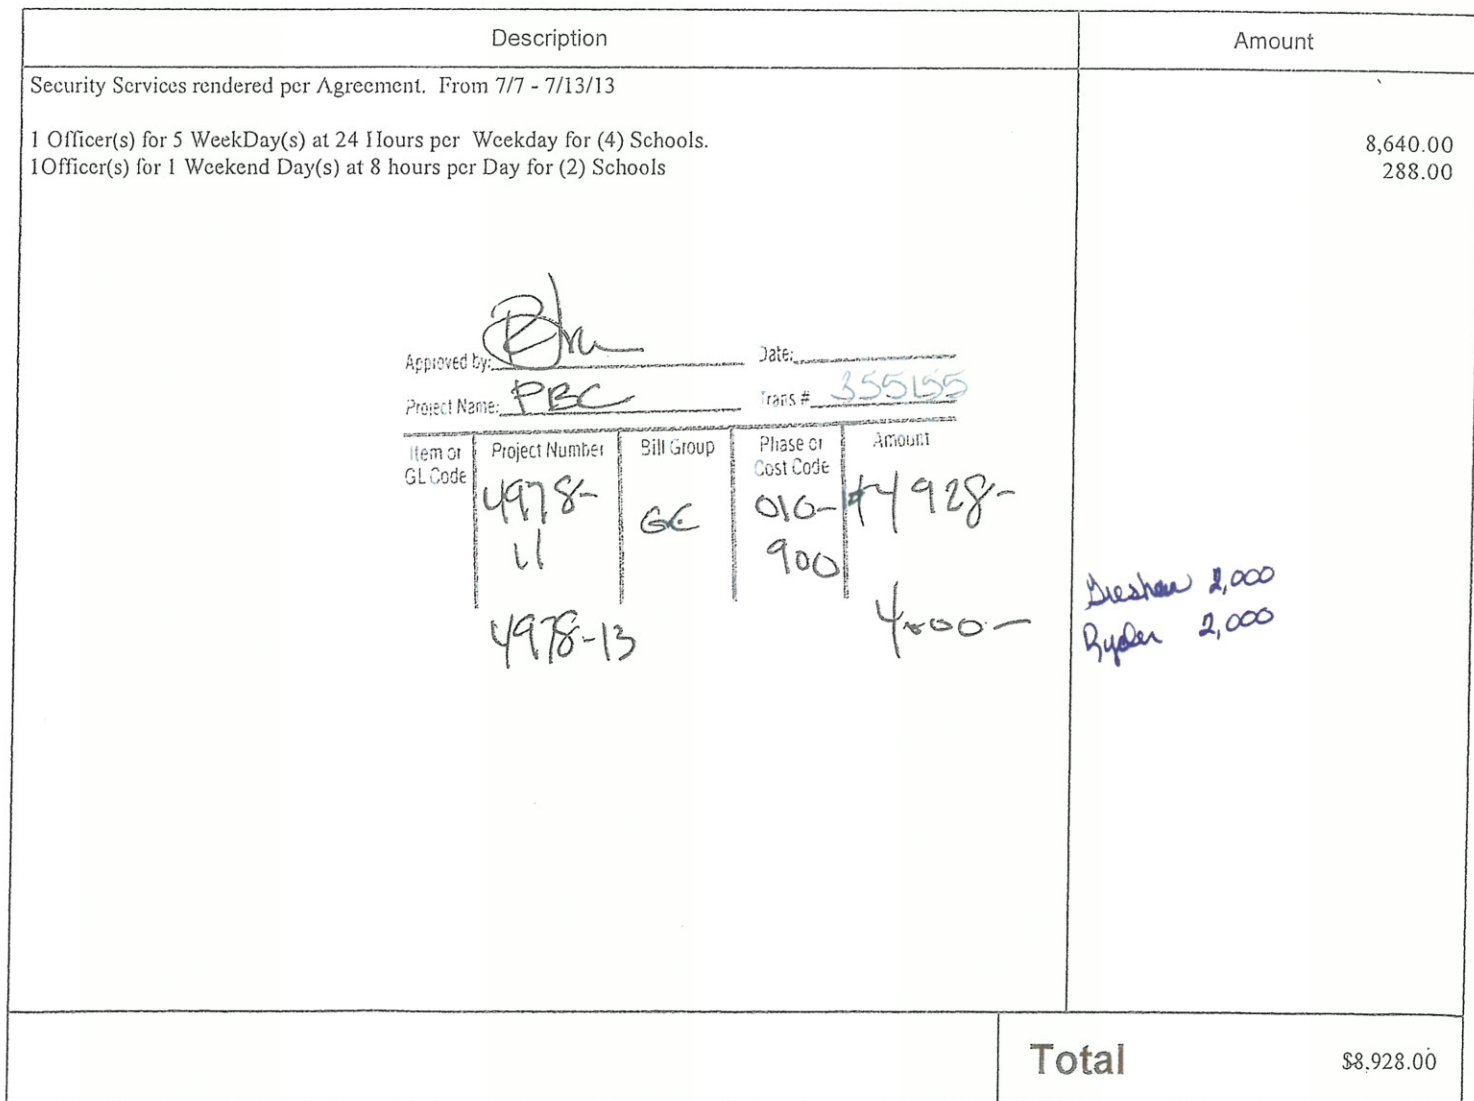 Description Amount
Security Services rendered per Agreement. From 7/7 - 7/13/13
1 Officer(s) for 5 WeekDay(s) at 24 Hours per Weekday for (4) Schools. 8,640.00
1Officer(s) for 1 Weekend Day(s) at 8 hours per Day for (2) Schools 288.00
Approved by: Date:
Project Name: PBC Trans # 355155
Item or GL Code Project Number Bill Group Phase or Cost Code Amount
4978-11 GC 010-900 4928-
4978-13 4000-
Gresham 2,000
Ryder 2,000
Total $8,928.00